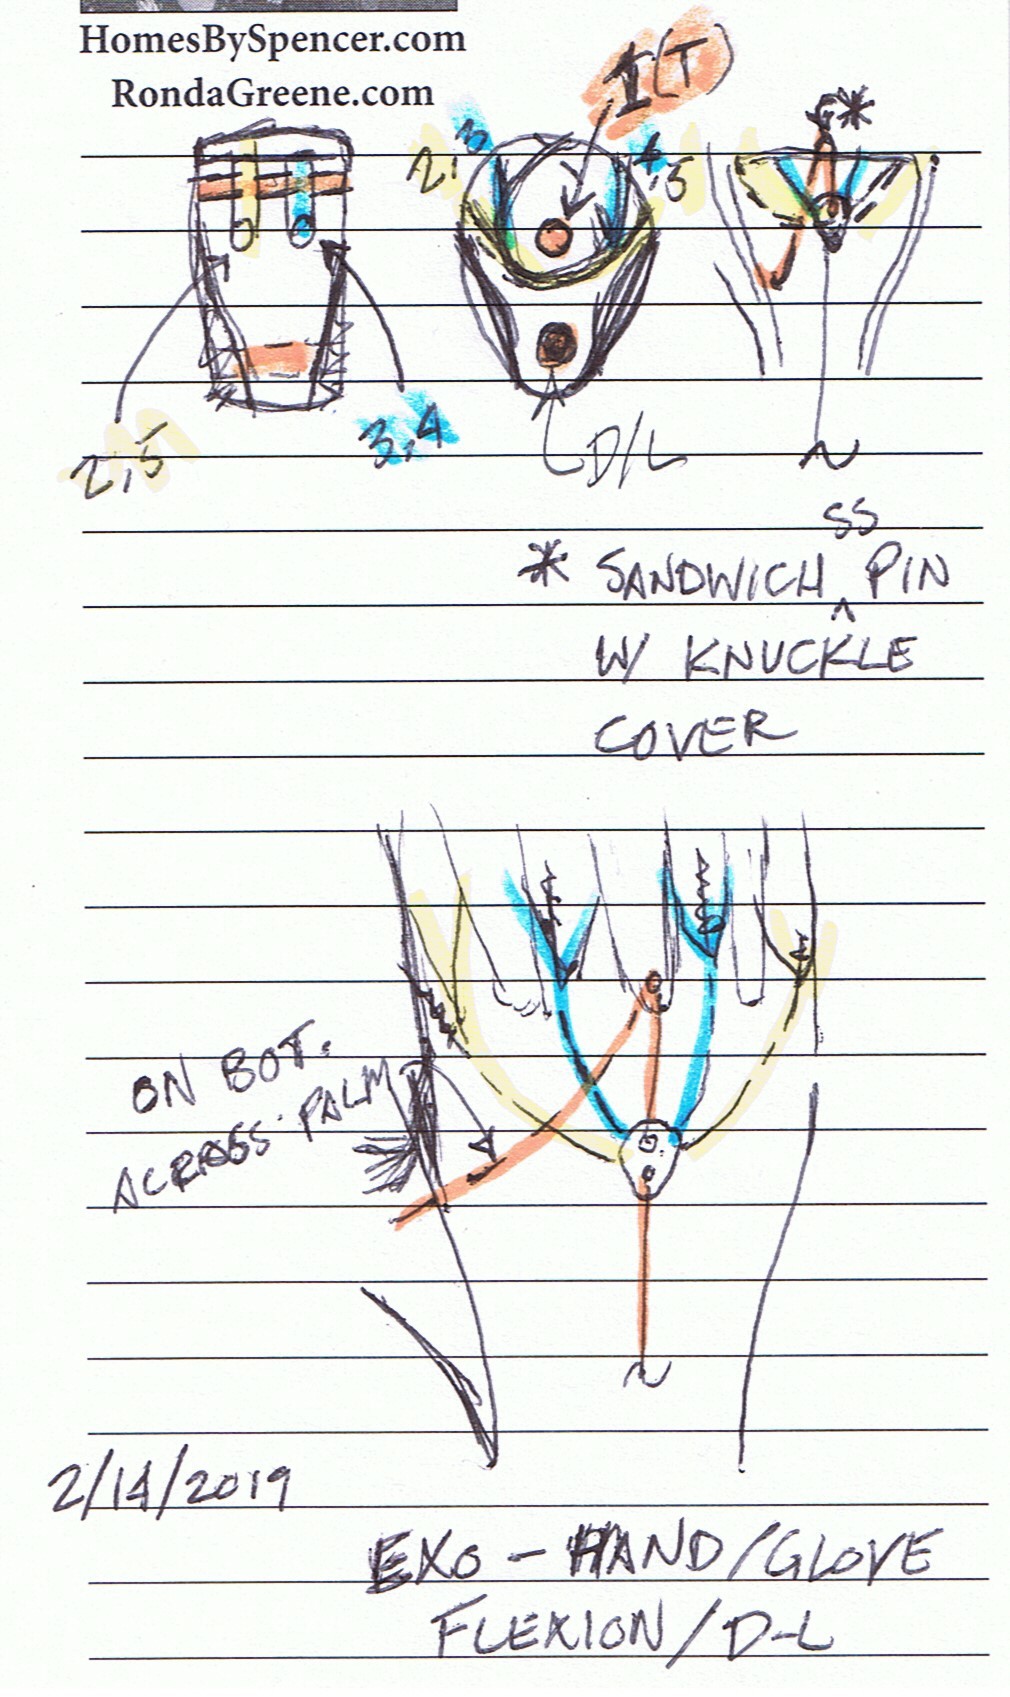 HomesBySpencer.com
RondaGreene.com
1(T)
*
2,3
4,5
2,5
3,4
D/L
SS
* SANDWICH ^ PIN
W/ KNUCKLE
COVER
ON BOT.
ACROSS PALM
2/14/2019
EXO - HAND/GLOVE
FLEXION/D-L